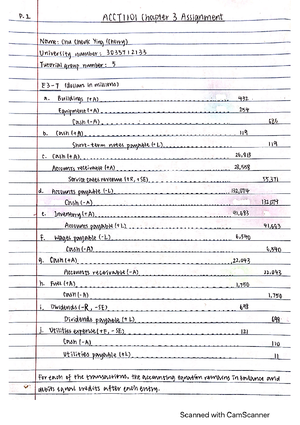 P.1
ACCT1101 Chapter 3 Assignment
Name: Chu Cheuk Ying (Cherry)
University number: 3035712133
Tutorial group number: 5
E3-9 (dollars in millions)
a. Buildings (+A) 432
Equipment (+A) 254
Cash (-A) 686
b. Cash (+A) 119
Short-term notes payable (+L) 119
c. Cash (+A)
Accounts receivable (+A)
Service sales revenue (+R, +SE)
d. Accounts payable (-L)
Cash (-A)
e. Inventory (+A)
Accounts payable (+L)
f. Wages payable (-L)
Cash (-A)
g. Cash (+A) 22,043
Accounts receivable (-A) 22,043
h. Fuel (+A) 1,750
Cash (-A) 1,750
i. Dividends (-R, -SE) 698
Dividends payable (+L) 698
j. Utilities expense (+E, -SE) 121
Cash (-A) 110
Utilities payable (+L) 11
For each of the transactions, the accounting equation remains in balance and
debits equal credits after each entry.
Scanned with CamScanner